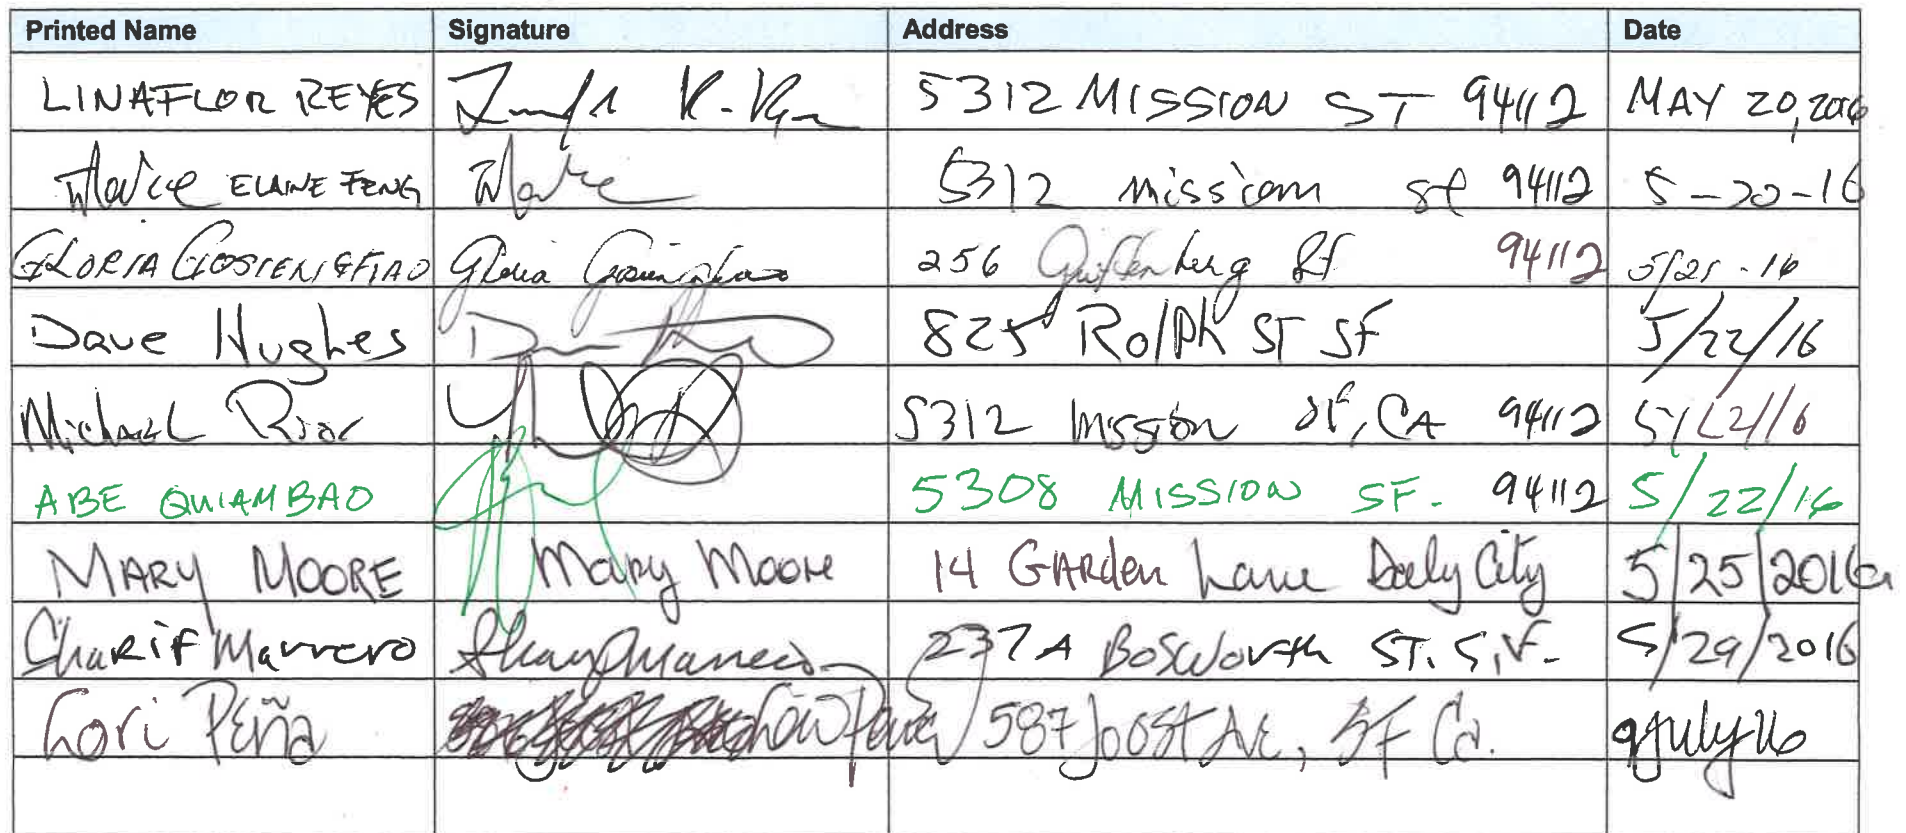 Printed Name Signature Address Date
LINAFLOR REYES 5312 MISSION ST 94112 MAY 20, 2016
ELAINE FENG 5312 mission st 94112 5-20-16
GLORIA GOSIENGFIAO Gloria Gosiengfiao 256 St 94112 5/21-16
Dave Hughes 825 Rolph ST SF 5/22/16
Michael 5312 Mission SF, CA 94112 5/22/16
ABE QUIAMBAO 5308 MISSION SF. 94112 5/22/16
MARY MOORE Mary Moore 14 GARden Lane Daly City 5/25/2016
ShaRiF Marrero 237A BosWorth ST. S.F. 5/29/2016
Lori Peña Lori Peña 587 Joost Ave, SF Ca. 9 July 16